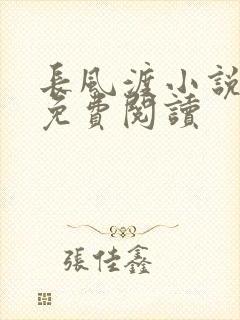 長風渡小説
免費閱讀
張佳鑫